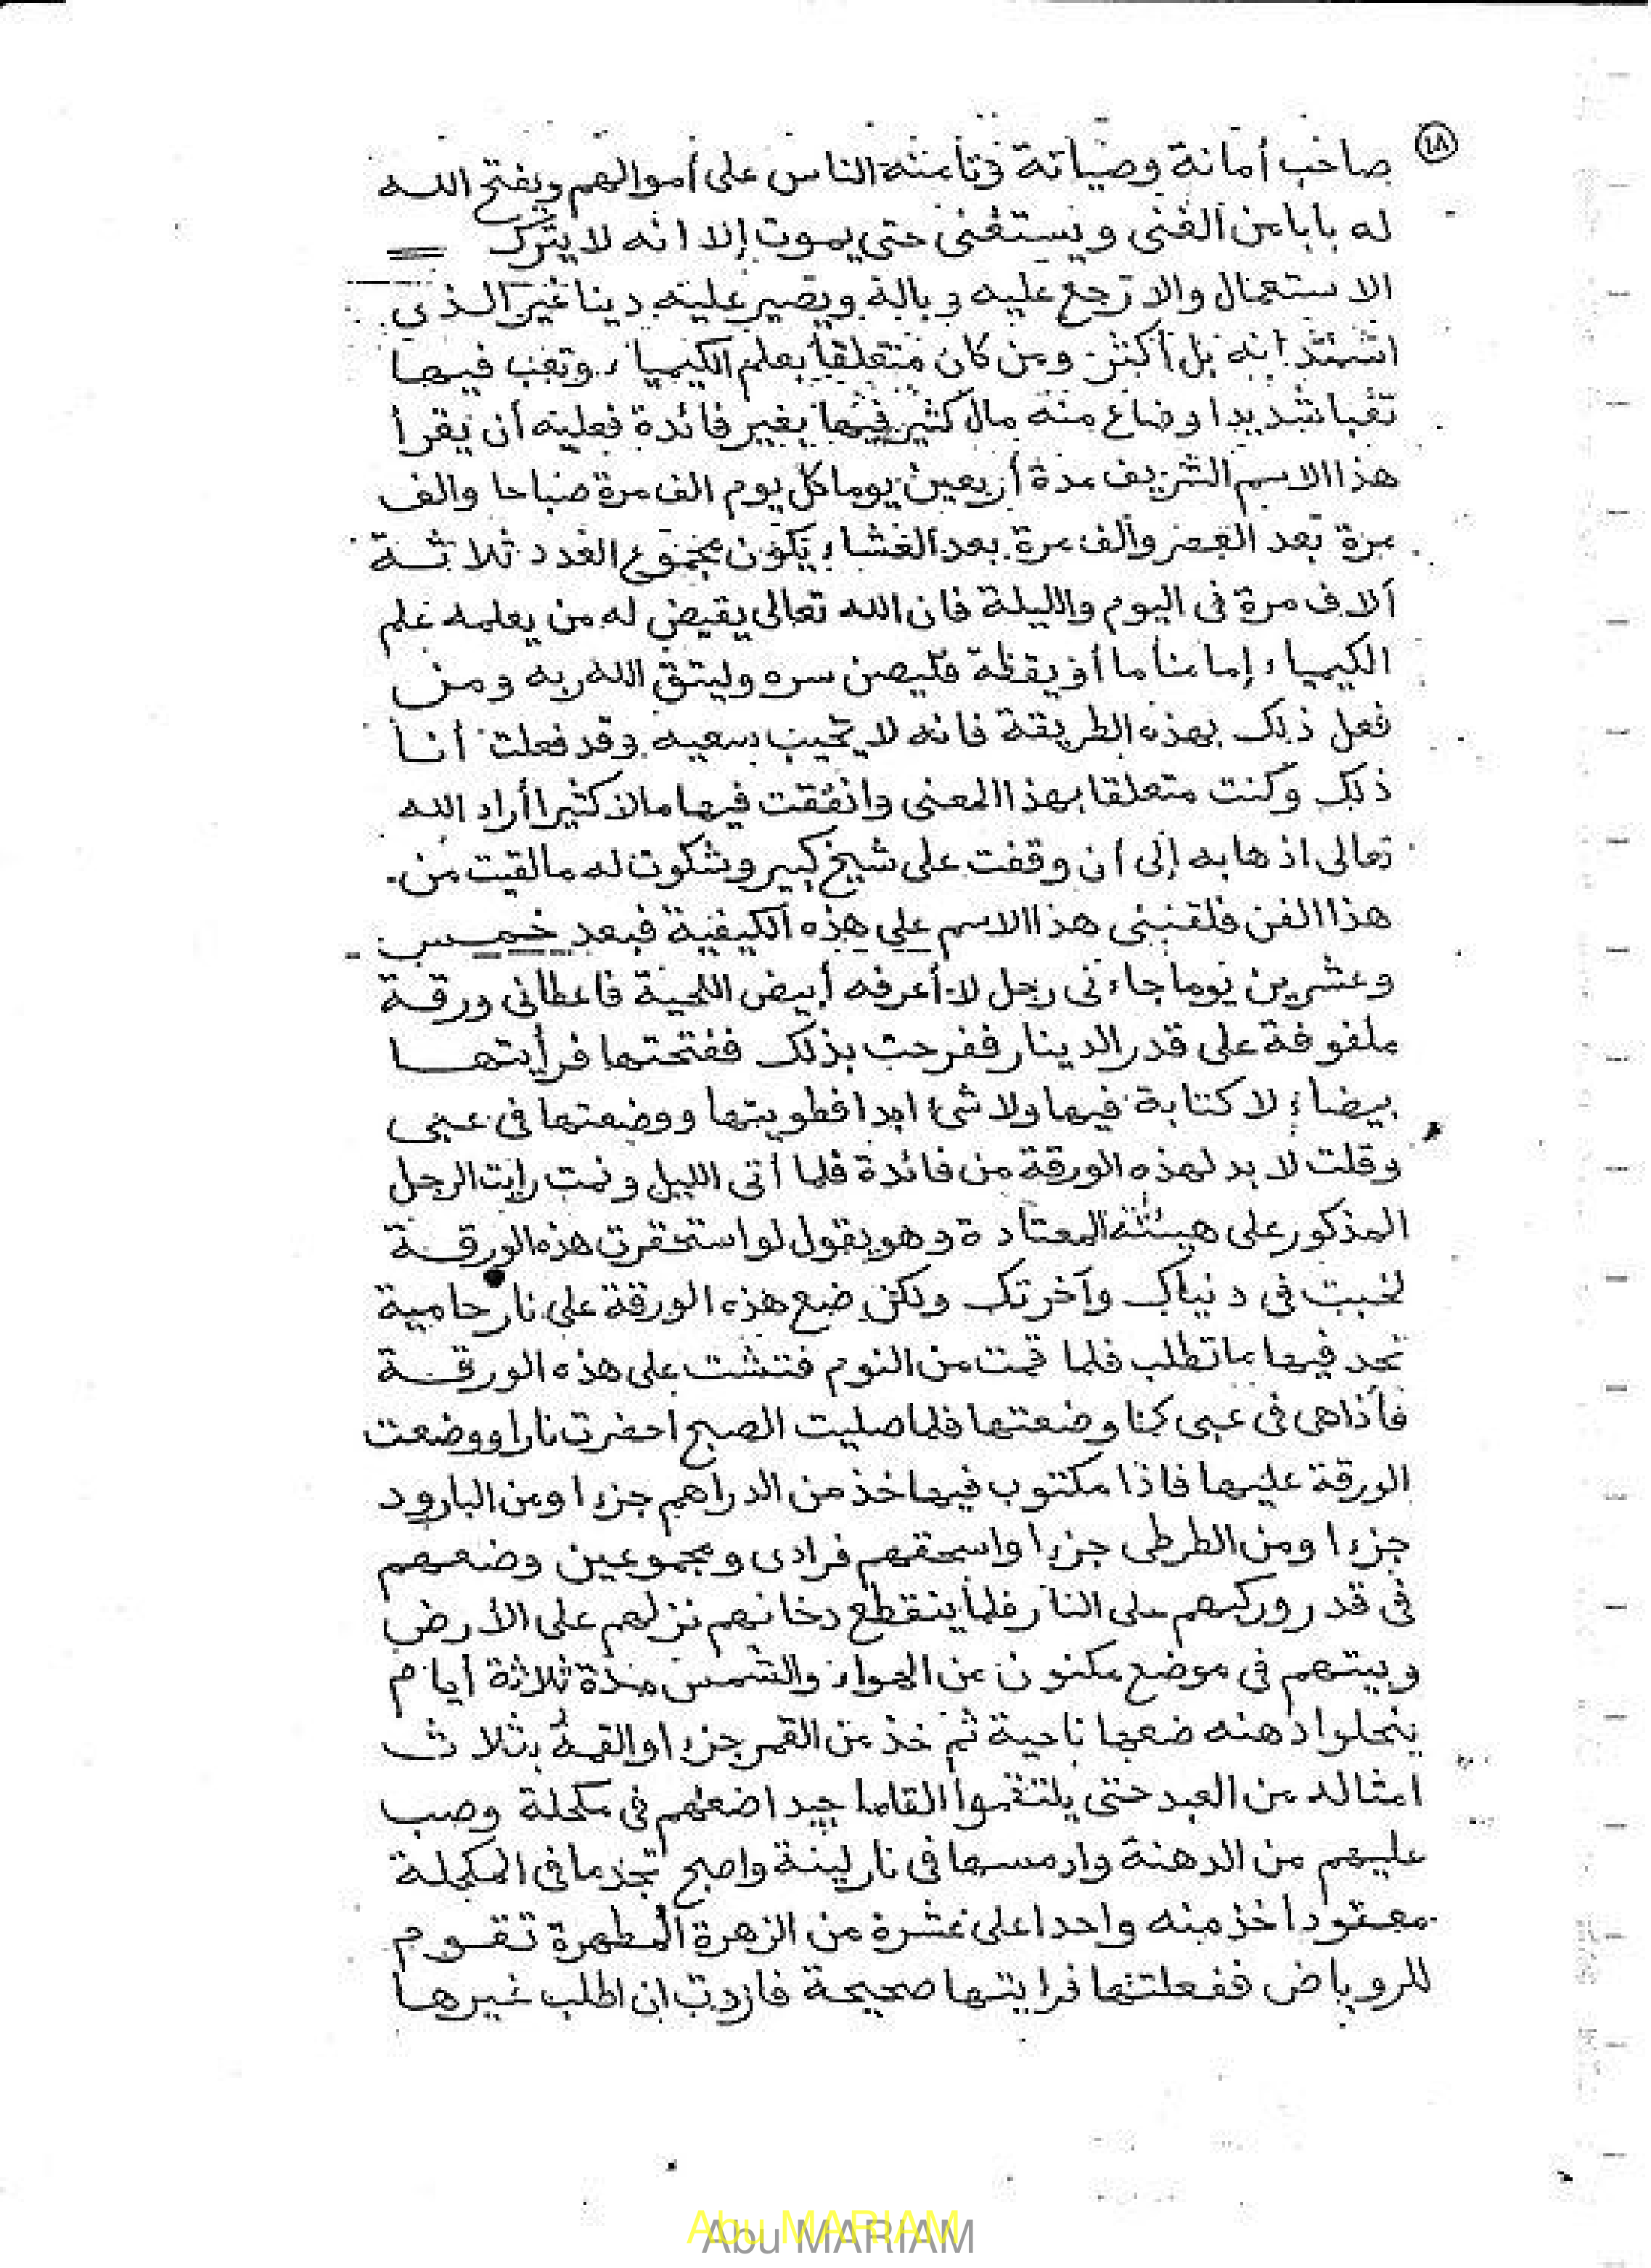 ١٨
صاحب أمانة وصيانة وتأمنه الناس على أموالهم ويفتح الله
له بابا من الغنى ويستغنى حتى يموت إلا انه لا يترك
الاستعمال والا ترجع عليه وبالة ويصير عليه دينا غير الذى
بل أكثر ومن كان متعلقا بعلم الكيمياء وتعب فيها
تعبا شديدا وضاع منه مال كثير فيها بغير فائدة فعليه أن يقرأ
هذا الاسم الشريف مدة أربعين يوما كل يوم الف مرة صباحا والف
مرة بعد العصر وألف مرة بعد العشاء يكون مجموع العدد ثلاثة
ألاف مرة فى اليوم والليلة فان الله تعالى يقيض له من يعلمه علم
الكيمياء إما مناما أو يقظة فليصن سره وليتق الله ربه ومن
فعل ذلك بهذه الطريقة فانه لا يخيب سعيه وقد فعلت أنا
ذلك وكنت متعلقا بهذا المعنى وانفقت فيها مالا كثيرا أراد الله
تعالى اذهابه إلى ان وقفت على شيخ كبير وشكوت له مالقيت من
هذا الفن فلقننى هذا الاسم على هذه الكيفية فبعد خمس
وعشرين يوما جاءنى رجل لا أعرفه أبيض اللحية فاعطانى ورقة
ملفوفة على قدر الدينار ففرحت بذلك ففتحتها فرأيتها
بيضاء لا كتابة فيها ولا شئ ابدا فطويتها ووضعتها فى عبى
وقلت لا بد لهذه الورقة من فائدة فلما أتى الليل ونمت رايت الرجل
المذكور على هيئته المعتادة وهو يقول لو استحقرت هذه الورقة
لخبت فى دنياك وآخرتك ولكن ضع هذه الورقة على نار حامية
تجد فيها ما تطلب فلما قمت من النوم فتشت على هذه الورقة
فأذاهى فى عبى كما وضعتها فلما صليت الصبح احضرت نارا ووضعت
الورقة عليها فاذا مكتوب فيها خذ من الدراهم جزءا ومن البارود
جزءا ومن الطرطى جزءا واسحقهم فرادى ومجموعين وضعهم
فى قدر وركبهم على النار فلما ينقطع دخانهم نزلهم على الأرض
وبيتهم فى موضع مكنون عن الهواء والشمس مدة ثلاثة أيام
ينحلوا دهنه ضعها ناحية ثم خذ من القمر جزءا والقمه بثلاث
امثاله من العبد حتى يلتقموا القاما جيدا ضعهم فى مكحلة وصب
عليهم من الدهنة وادمسها فى نار لينة واصبح تجد ما فى المكحلة
معقودا خذ منه واحدا على عشرة من الزهرة المطهرة تقوم
للروباض ففعلتها فرايتها صحيحة فاردت ان اطلب غيرها
Abu MARIAM